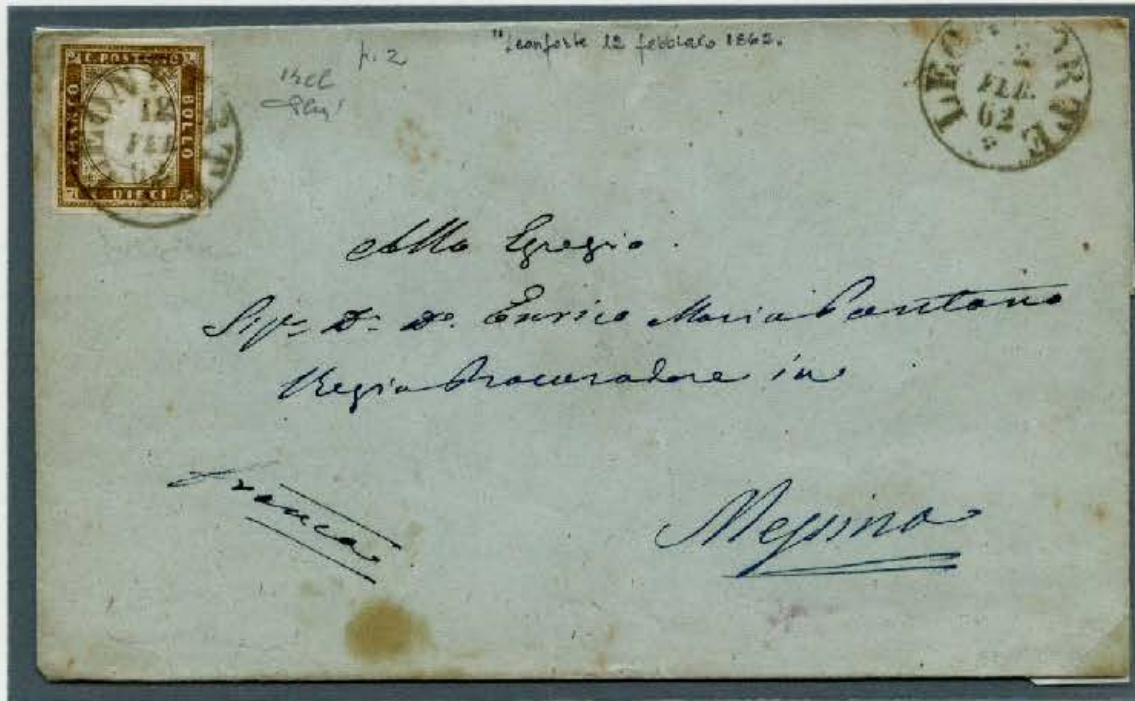 C. POSTALE
FRANCO
BOLLO
DIECI
LEONFORTE
12
FEB.
p. 2
"Leonforte 12 febbraro 1862.
LEONFORTE
FEB.
62
Allo Egregio
Sigr. Dn. Do. Enrico Maria Pantano
Regio Procuradore in
Franca
Messina